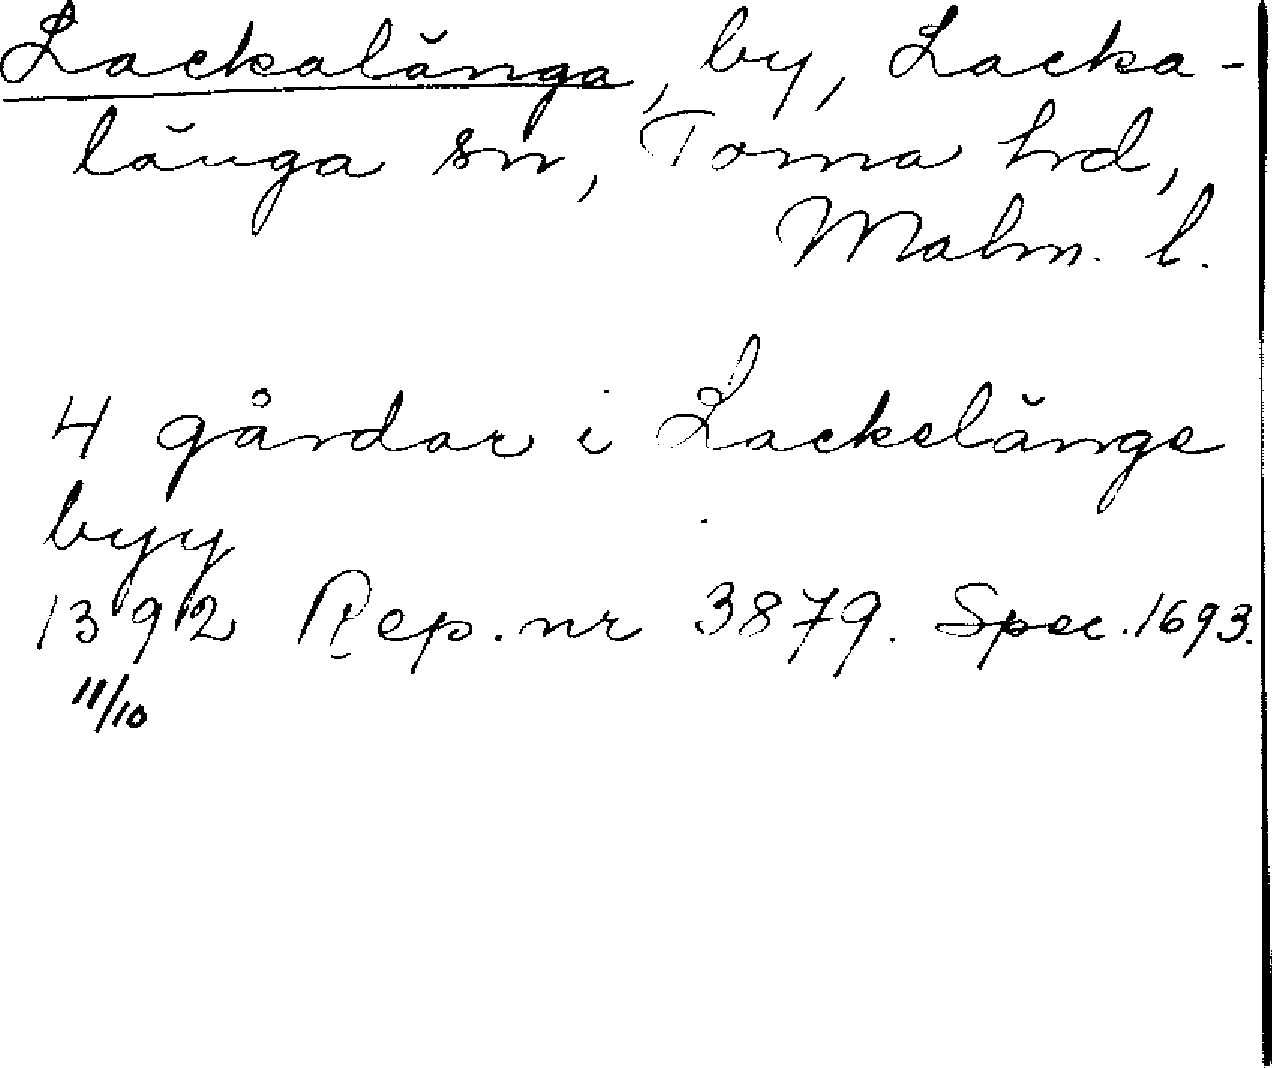 Lackalänga, by, Lacka-
länga sn, Torna hd,
Malm. l.
4 gårdar i Lackelänge
byy
1392 Rep. nr 3879. Spec. 1693.
11/10